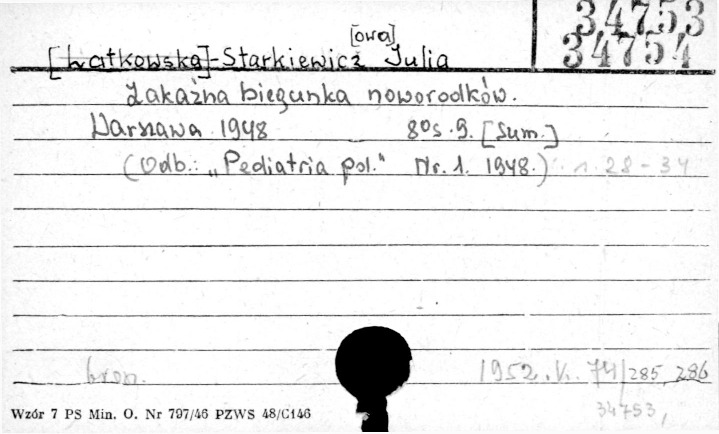 34753
34754
[owa]
[Łatkowska]-Starkiewicz Julia
Zakaźna biegunka noworodków.
Warszawa 1948 8os. 9. [Sum.]
(Odb.: „Pediatria pol." Nr. 1. 1948.) n. 28-34
bron. 1952. K. 74/285, 286
Wzór 7 PS Min. O. Nr 797/46 PZWS 48/C146
34753,